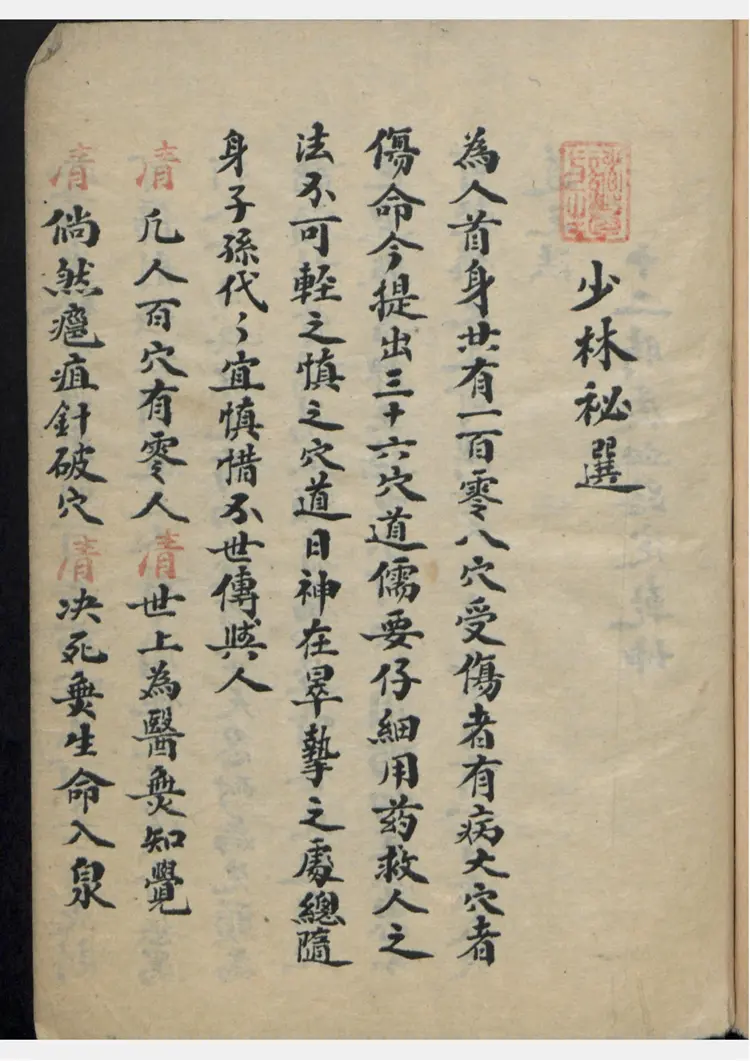 少林秘選
為人首身共有一百零八穴受傷者有病大穴者
傷命今提出三十六穴道儒要仔細用药救人之
法不可輊之慎之穴道日神在翠摯之處總隨
身子孫代々宜慎惜不世傳與人
清凢人百穴有零人清世上為醫無知覺
清倘然瘢疽針破穴清决死無生命入泉